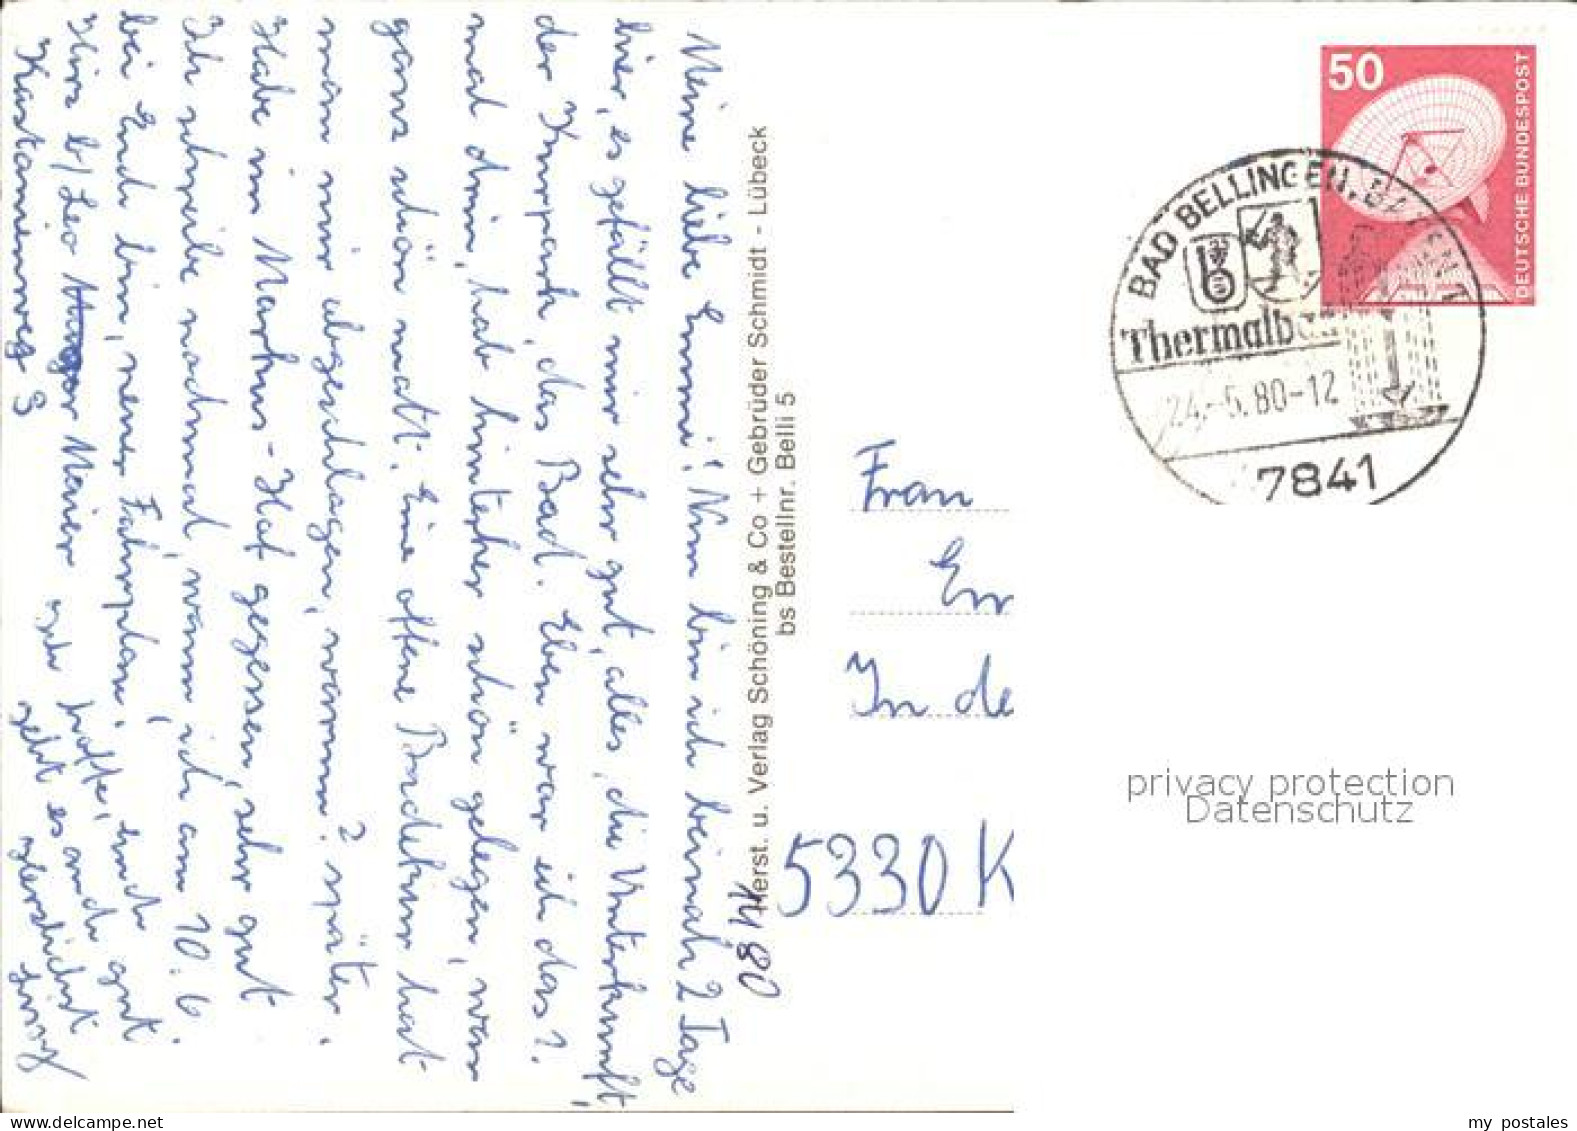 Meine liebe Emmi! Nun bin ich beinah 2 Tage
hier, es gefällt mir sehr gut, alles, die Unterkunft,
der Kurpark, das Bad. Eben war ich das 2.
mal drin, hab hinterher schön gelegen, war
ganz schön matt. Eine offene Badekur hat
man mir abgeschlagen, warum? später.
Habe im Markus-Hof gegessen, sehr gut
Ich schreibe nochmal, wann ich am 10. 6.
bei Euch bin, meiner Fahrplan.
b/ Leo Meier hoffe, Euch
geht es auch gut
Kastanienweg 3 herzlichst
Herst. u. Verlag Schöning & Co + Gebrüder Schmidt - Lübeck
bs Bestellnr. Belli 5
50
DEUTSCHE BUNDESPOST
BAD BELLINGEN
Thermalbad
24.-5.80-12
7841
Frau
Em
In de
5330 K
privacy protection
Datenschutz
my postales